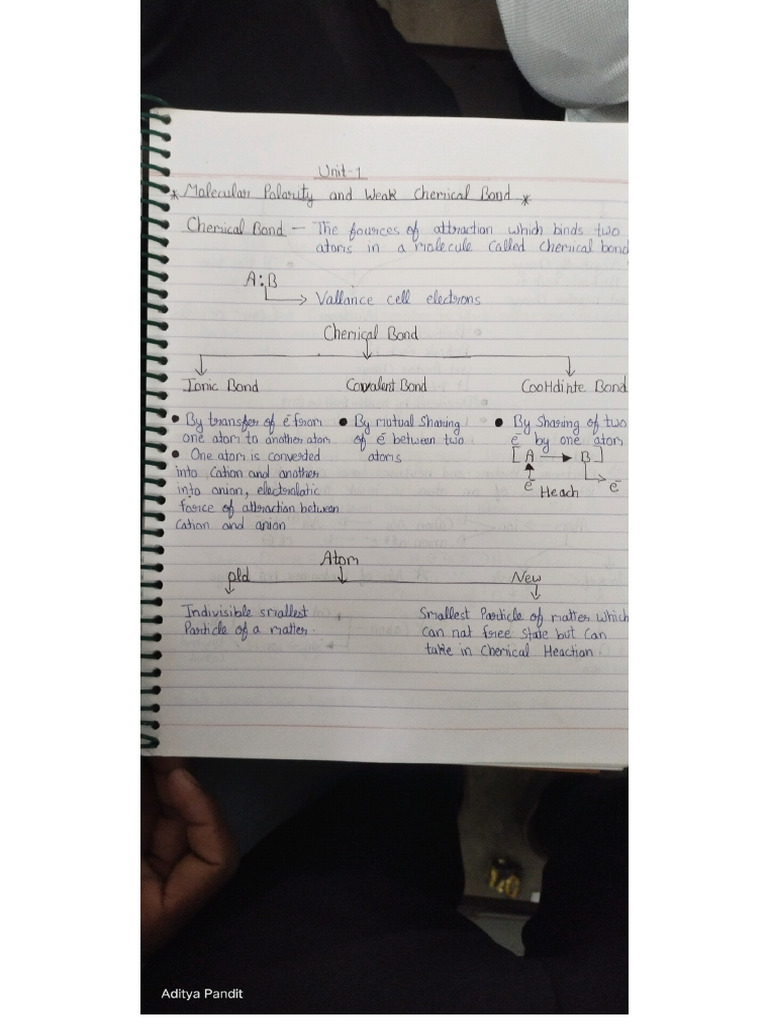 Unit-1
* Molecular Polarity and Weak Chemical Bond *
Chemical Bond - The fources of attraction which binds two
atoms in a molecule called chemical bond
A:B
Vallance cell electrons
Chemical Bond
Ionic Bond Covalent Bond CooHdinte Bond
• By transfer of ē from • By mutual sharing • By sharing of two
one atom to another atom of ē between two ē by one atom
• One atom is converted atoms [A → B]
into Cation and another ē Heach ē
into anion, electrolatic
force of attraction between
Cation and anion
Atom
old New
Indivisible smallest Smallest Particle of matter which
Particle of a matter. can nat free state but can
take in Chemical Heaction
Aditya Pandit